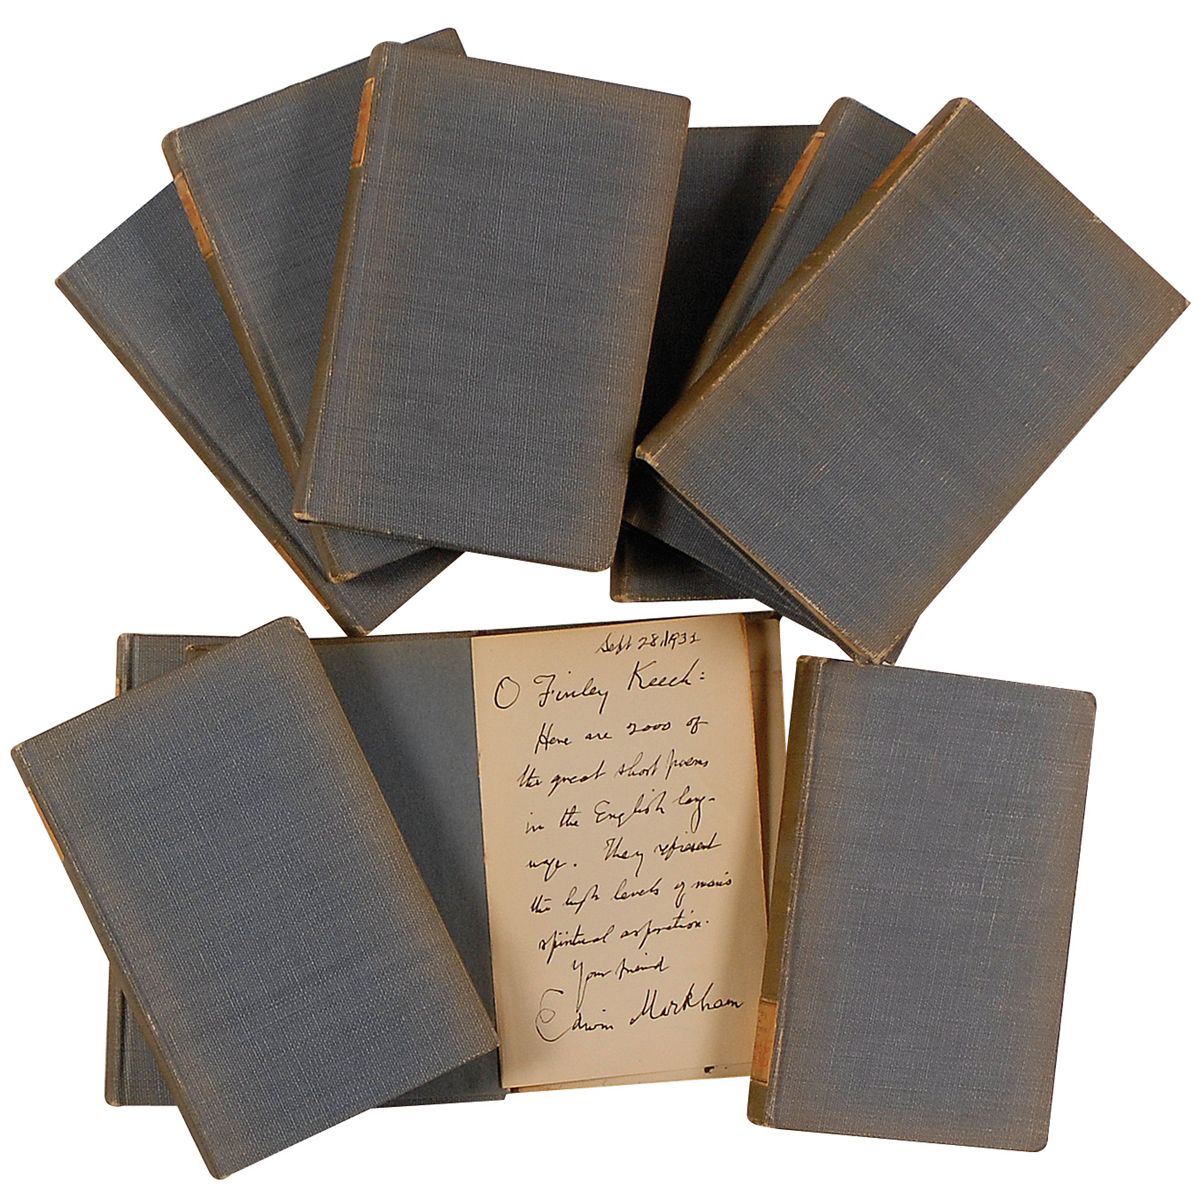 Sept 28, 1931
O Finley Keech:
Here are 2000 of
the great short poems
in the English lang-
uage. They represent
the high levels of man's
spiritual aspiration.
Your friend
Edwin Markham